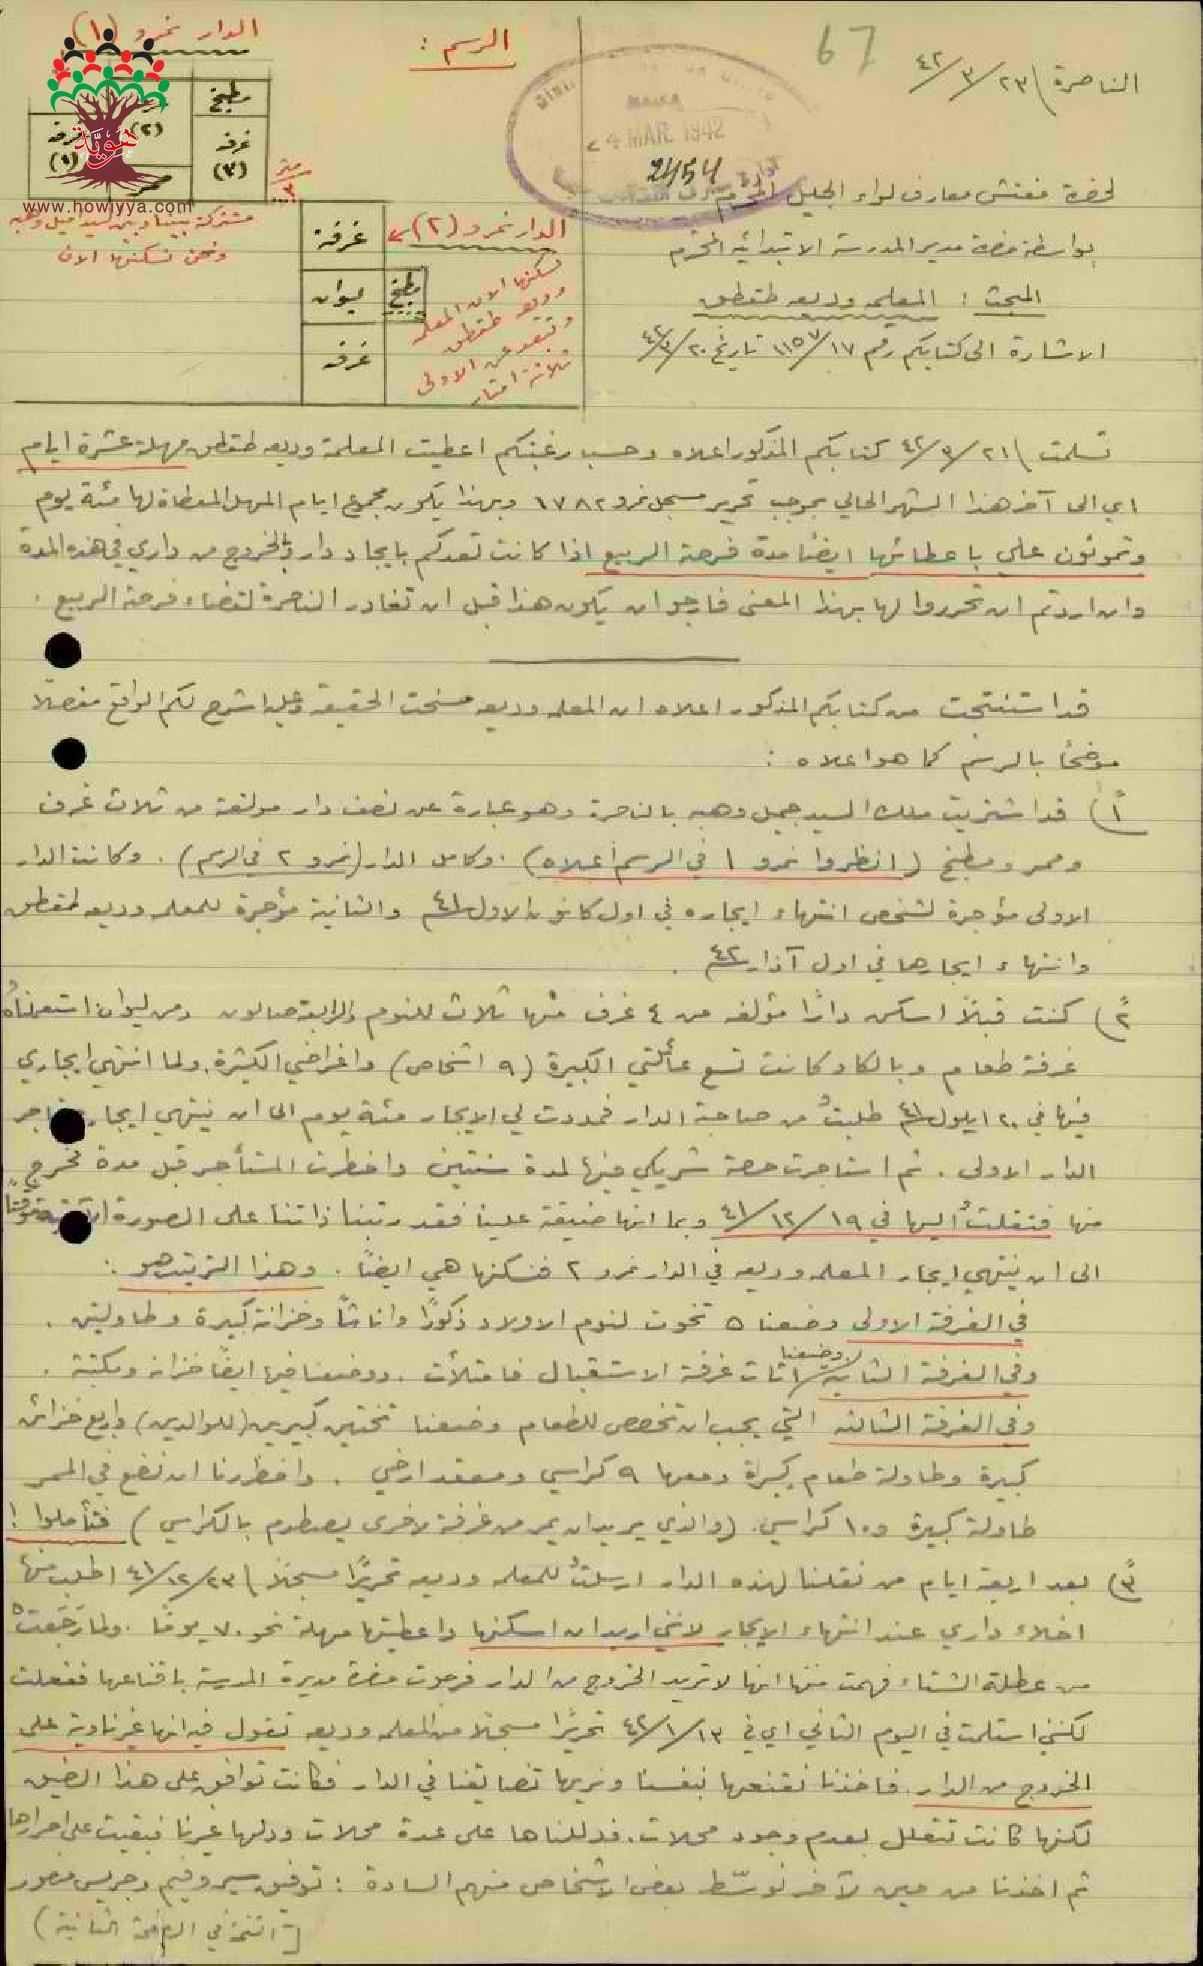 67
الناصرة \ ٢٣/٣/٤٢
MAR. 1942
2454
لحضرة مفتش معارف لواء الجليل المحترم
بواسطة حضرة مدير المدرسة الابتدائية المحترم
المبحث : المعلمه وديعه طقطق
الاشارة الى كتابكم رقم ١١٥٧/١٧ تاريخ ٢٠/٣/٤٢
الرسم :
الدار نمرو (١)
مطبخ
(٢)
غرفه (٣)
غرفه (١)
ممر
متر ٣
www.howiyya.com
هوية
مشتركة بيننا وبين السيد جميل وهبه
ونحن نسكنها الان
الدار نمرو (٢)
غرفة
ليوان
مطبخ
غرفه
تسكنها الان المعلمه
وديعه طقطق
وتبعد عن الاولى
ثلاثة امتار
تسلمت \ ٢١/٣/٤٢ كتابكم المذكور اعلاه وحسب رغبتكم اعطيت المعلمة وديعه طقطق مهلة عشرة ايام
اي الى آخر هذا الشهر الحالي بموجب تحرير مسجل نمرو ١٧٨٢ وبهذا يكون مجموع ايام المهل المعطاة لها مئة يوم
وتمونون علي باعطائها ايضا مدة فرصة الربيع اذا كانت تعدكم بايجاد دار والخروج من داري في هذه المدة
وان اردتم ان تحرروا لها بهذا المعنى فارجو ان يكون هذا قبل ان تغادر الناصرة لقضاء فرصة الربيع .
قد استنتجت من كتابكم المذكور اعلاه ان المعلمه وديعه مسخت الحقيقة وعليه اشرح لكم الواقع مفصلاً
موضحاً بالرسم كما هو اعلاه :
١) قد اشتريت ملك السيد جميل وهبه بالناصرة وهو عبارة عن نصف دار مولفة من ثلاث غرف
وممر ومطبخ (انظروا نمرو ١ في الرسم اعلاه) . وكامل الدار (نمرو ٢ في الرسم) . وكانت الدار
الاولى مؤجرة لشخص انتهاء ايجاره في اول كانون الاول ٤١ والثانية مؤجرة للمعلمه وديعه طقطق
وانتهاء ايجارها في اول آذار ٤٢ .
٢) كنت قبلاً اسكن داراً مؤلفه من ٤ غرف منها ثلاث للنوم والرابعة صالون ومن ليوان استعملناه
غرفة طعام وبالكاد كانت تسع عائلتي الكبيرة (٩ اشخاص) واغراضي الكثيرة. ولما انتهى ايجاري
فيها في ٢٠ ايلول ٤١ طلبتُ من صاحبة الدار فمددت لي الايجار مئة يوم الى ان ينتهي ايجار
الدار الاولى . ثم استاجرت حصة شريكي فيها لمدة سنتين واضطرت المستأجر قبل مدة تخرج
منها فنقلتُ اليها في ١٩/١٢/٤١ وبما انها ضيقة علينا فقد رتبنا ذاتنا على الصورة الآتية موقتاً
الى ان ينتهي ايجار المعلمه وديعه في الدار نمرو ٢ فنسكنها هي ايضاً . وهذا الترتيب هو :
في الغرفة الاولى وضعنا ٥ تخوت لنوم الاولاد ذكورًا واناثاً وخزانة كبيرة وطاولتين .
وفي الغرفة الثانية وضعنا اثاث غرفة الاستقبال فامتلأت . ووضعنا فيها ايضاً خزانه ومكتبة .
وفي الغرفة الثالثه التي يجب ان تخصص للطعام وضعنا تختين كبيرين (للوالدين) واربع خزائن
كبيرة وطاولة طعام كبيرة ومعها ٩ كراسي ومقعد ارضي . واضطررنا ان نضع في الممر
طاولة كبيرة و١٠ كراسي . (والذي يريد ان يمر من غرفة لاخرى يصطدم بالكراسي) فتأملوا !
٣) بعد اربعة ايام من نقلنا لهذه الدار ارسلتُ للمعلمه وديعه تحريرًا مسجلاً \ ٢٣/١٢/٤١ اطلب منها
اخلاء داري عند انتهاء الايجار لانني اريد ان اسكنها واعطيتها مهلة نحو ٧٠ يومًا . ولما رَجَعَت
من عطلة الشتاء فهمت منها انها لا تريد الخروج من الدار فرجوت حضرة مديرة المدرسة باقناعها ففعلت
لكنني استلمت في اليوم الثاني اي في ١٣/١/٤٢ تحريرًا مسجلاً من المعلمه وديعه تقول فيه انها غير ناوية على
الخروج من الدار . فاخذنا نقنعها بنفسنا ونريها تضايقنا في الدار فكانت توافق على هذا الضيق
لكنها كانت تتعلل بعدم وجود محلات . فدللناها على عدة محلات ودلها غيرنا فبقيت على اصرارها
ثم اخذنا من حين لآخر نوسّط بعض الاشخاص منهم السادة : توفيق وجريس منصور
(التتمة في الصفحة الثانية)